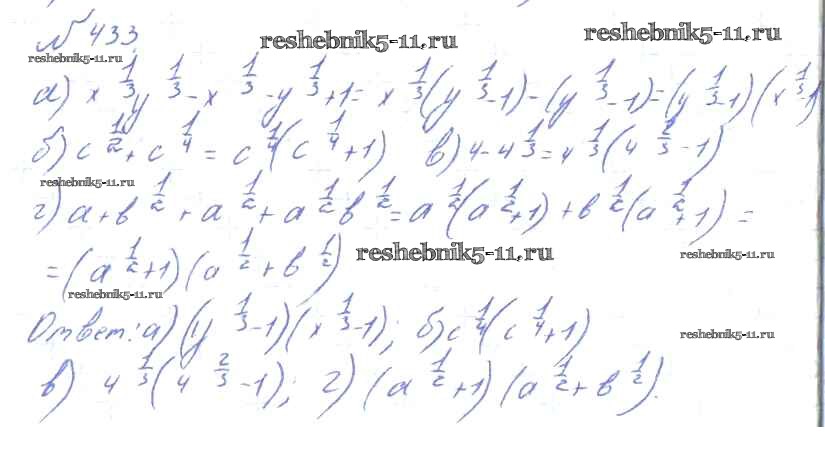 № 433
reshebnik5-11.ru
reshebnik5-11.ru
reshebnik5-11.ru
а) x^{1/3}y^{1/3} - x^{1/3} - y^{1/3} + 1 = x^{1/3}(y^{1/3} - 1) - (y^{1/3} - 1) = (y^{1/3} - 1)(x^{1/3} - 1)
б) c^{1/2} + c^{1/4} = c^{1/4}(c^{1/4} + 1) в) 4 - 4^{1/3} = 4^{1/3}(4^{2/3} - 1)
reshebnik5-11.ru
г) a + в^{1/2} + a^{1/2} + a^{1/2}в^{1/2} = a^{1/2}(a^{1/2} + 1) + в^{1/2}(a^{1/2} + 1) =
= (a^{1/2} + 1)(a^{1/2} + в^{1/2})
reshebnik5-11.ru
reshebnik5-11.ru
reshebnik5-11.ru
Ответ: а) (y^{1/3} - 1)(x^{1/3} - 1); б) c^{1/4}(c^{1/4} + 1)
reshebnik5-11.ru
в) 4^{1/3}(4^{2/3} - 1); г) (a^{1/2} + 1)(a^{1/2} + в^{1/2}).